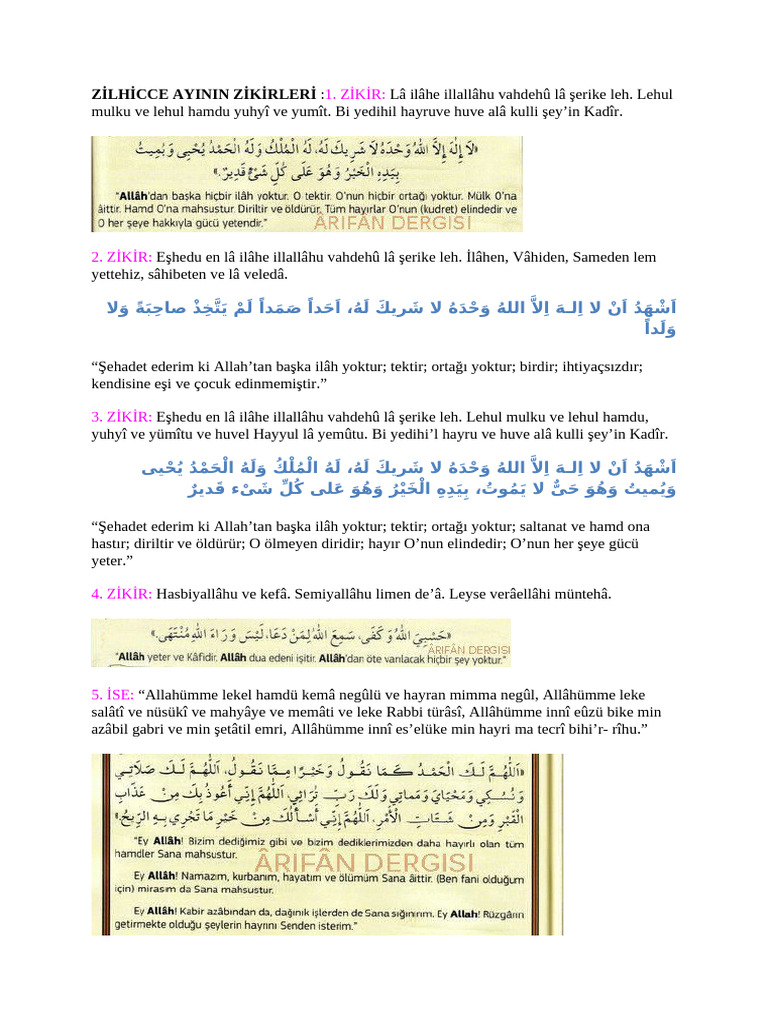 ZİLHİCCE AYININ ZİKİRLERİ :1. ZİKİR: Lâ ilâhe illallâhu vahdehû lâ şerike leh. Lehul
mulku ve lehul hamdu yuhyî ve yumît. Bi yedihil hayruve huve alâ kulli şey’in Kadîr.
«لَا إِلٰهَ إِلَّا اللهُ وَحْدَهُ لَا شَرِيكَ لَهُ، لَهُ الْمُلْكُ وَلَهُ الْحَمْدُ يُحْيِى وَيُمِيتُ
بِيَدِهِ الْخَيْرُ وَهُوَ عَلَى كُلِّ شَيْءٍ قَدِيرٌ.»
“Allâh’dan başka hiçbir ilâh yoktur. O tektir. O’nun hiçbir ortağı yoktur. Mülk O’na
âittir. Hamd O’na mahsustur. Diriltir ve öldürür. Tüm hayırlar O’nun (kudret) elindedir ve
O her şeye hakkıyla gücü yetendir.”
ÂRIFÂN DERGISI
2. ZİKİR: Eşhedu en lâ ilâhe illallâhu vahdehû lâ şerike leh. İlâhen, Vâhiden, Sameden lem
yettehiz, sâhibeten ve lâ veledâ.
اَشْهَدُ اَنْ لا اِلـهَ اِلاَّ اللهُ وَحْدَهُ لا شَريكَ لَهُ، اَحَداً صَمَداً لَمْ يَتَّخِذْ صاحِبَةً وَلا
وَلَداً
“Şehadet ederim ki Allah’tan başka ilâh yoktur; tektir; ortağı yoktur; birdir; ihtiyaçsızdır;
kendisine eşi ve çocuk edinmemiştir.”
3. ZİKİR: Eşhedu en lâ ilâhe illallâhu vahdehû lâ şerike leh. Lehul mulku ve lehul hamdu,
yuhyî ve yümîtu ve huvel Hayyul lâ yemûtu. Bi yedihi’l hayru ve huve alâ kulli şey’in Kadîr.
اَشْهَدُ اَنْ لا اِلـهَ اِلاَّ اللهُ وَحْدَهُ لا شَريكَ لَهُ، لَهُ الْمُلْكُ وَلَهُ الْحَمْدُ يُحْيى
وَيُميتُ وَهُوَ حَىٌّ لا يَمُوتُ، بِيَدِهِ الْخَيْرُ وَهُوَ عَلى كُلِّ شَىْء قَديرٌ
“Şehadet ederim ki Allah’tan başka ilâh yoktur; tektir; ortağı yoktur; saltanat ve hamd ona
hastır; diriltir ve öldürür; O ölmeyen diridir; hayır O’nun elindedir; O’nun her şeye gücü
yeter.”
4. ZİKİR: Hasbiyallâhu ve kefâ. Semiyallâhu limen de’â. Leyse verâellâhi müntehâ.
«حَسْبِيَ اللهُ وَكَفَى، سَمِعَ اللهُ لِمَنْ دَعَا، لَيْسَ وَرَاءَ اللهِ مُنْتَهَى.»
“Allâh yeter ve Kâfidir. Allâh dua edeni işitir. Allâh’dan öte varılacak hiçbir şey yoktur.”
ÂRIFÂN DERGISI
5. İSE: “Allahümme lekel hamdü kemâ negûlü ve hayran mimma negûl, Allâhümme leke
salâtî ve nüsükî ve mahyâye ve memâti ve leke Rabbi türâsî, Allâhümme innî eûzü bike min
azâbil gabri ve min şetâtil emri, Allâhümme innî es’elüke min hayri ma tecrî bihi’r- rîhu.”
«اَللّٰهُمَّ لَكَ الْحَمْدُ كَمَا نَقُولُ وَخَيْرًا مِمَّا نَقُولُ، اَللّٰهُمَّ لَكَ صَلَاتِي
وَنُسُكِي وَمَحْيَايَ وَمَمَاتِي وَلَكَ رَبِّ تُرَاثِي، اَللّٰهُمَّ إِنِّي أَعُوذُ بِكَ مِنْ عَذَابِ
الْقَبْرِ وَمِنْ شَتَاتِ الْأَمْرِ، اَللّٰهُمَّ إِنِّي أَسْأَلُكَ مِنْ خَيْرِ مَا تَجْرِي بِهِ الرِّيحُ»
“Ey Allâh! Bizim dediğimiz gibi ve bizim dediklerimizden daha hayırlı olan tüm
hamdler Sana mahsustur.
ÂRIFÂN DERGISI
Ey Allâh! Namazım, kurbanım, hayatım ve ölümüm Sana âittir. (Ben fani olduğum
için) mirasım da Sana mahsustur.
Ey Allâh! Kabir azâbından da, dağınık işlerden de Sana sığınırım. Ey Allah! Rüzgârın
getirmekte olduğu şeylerin hayrını Senden isterim.”